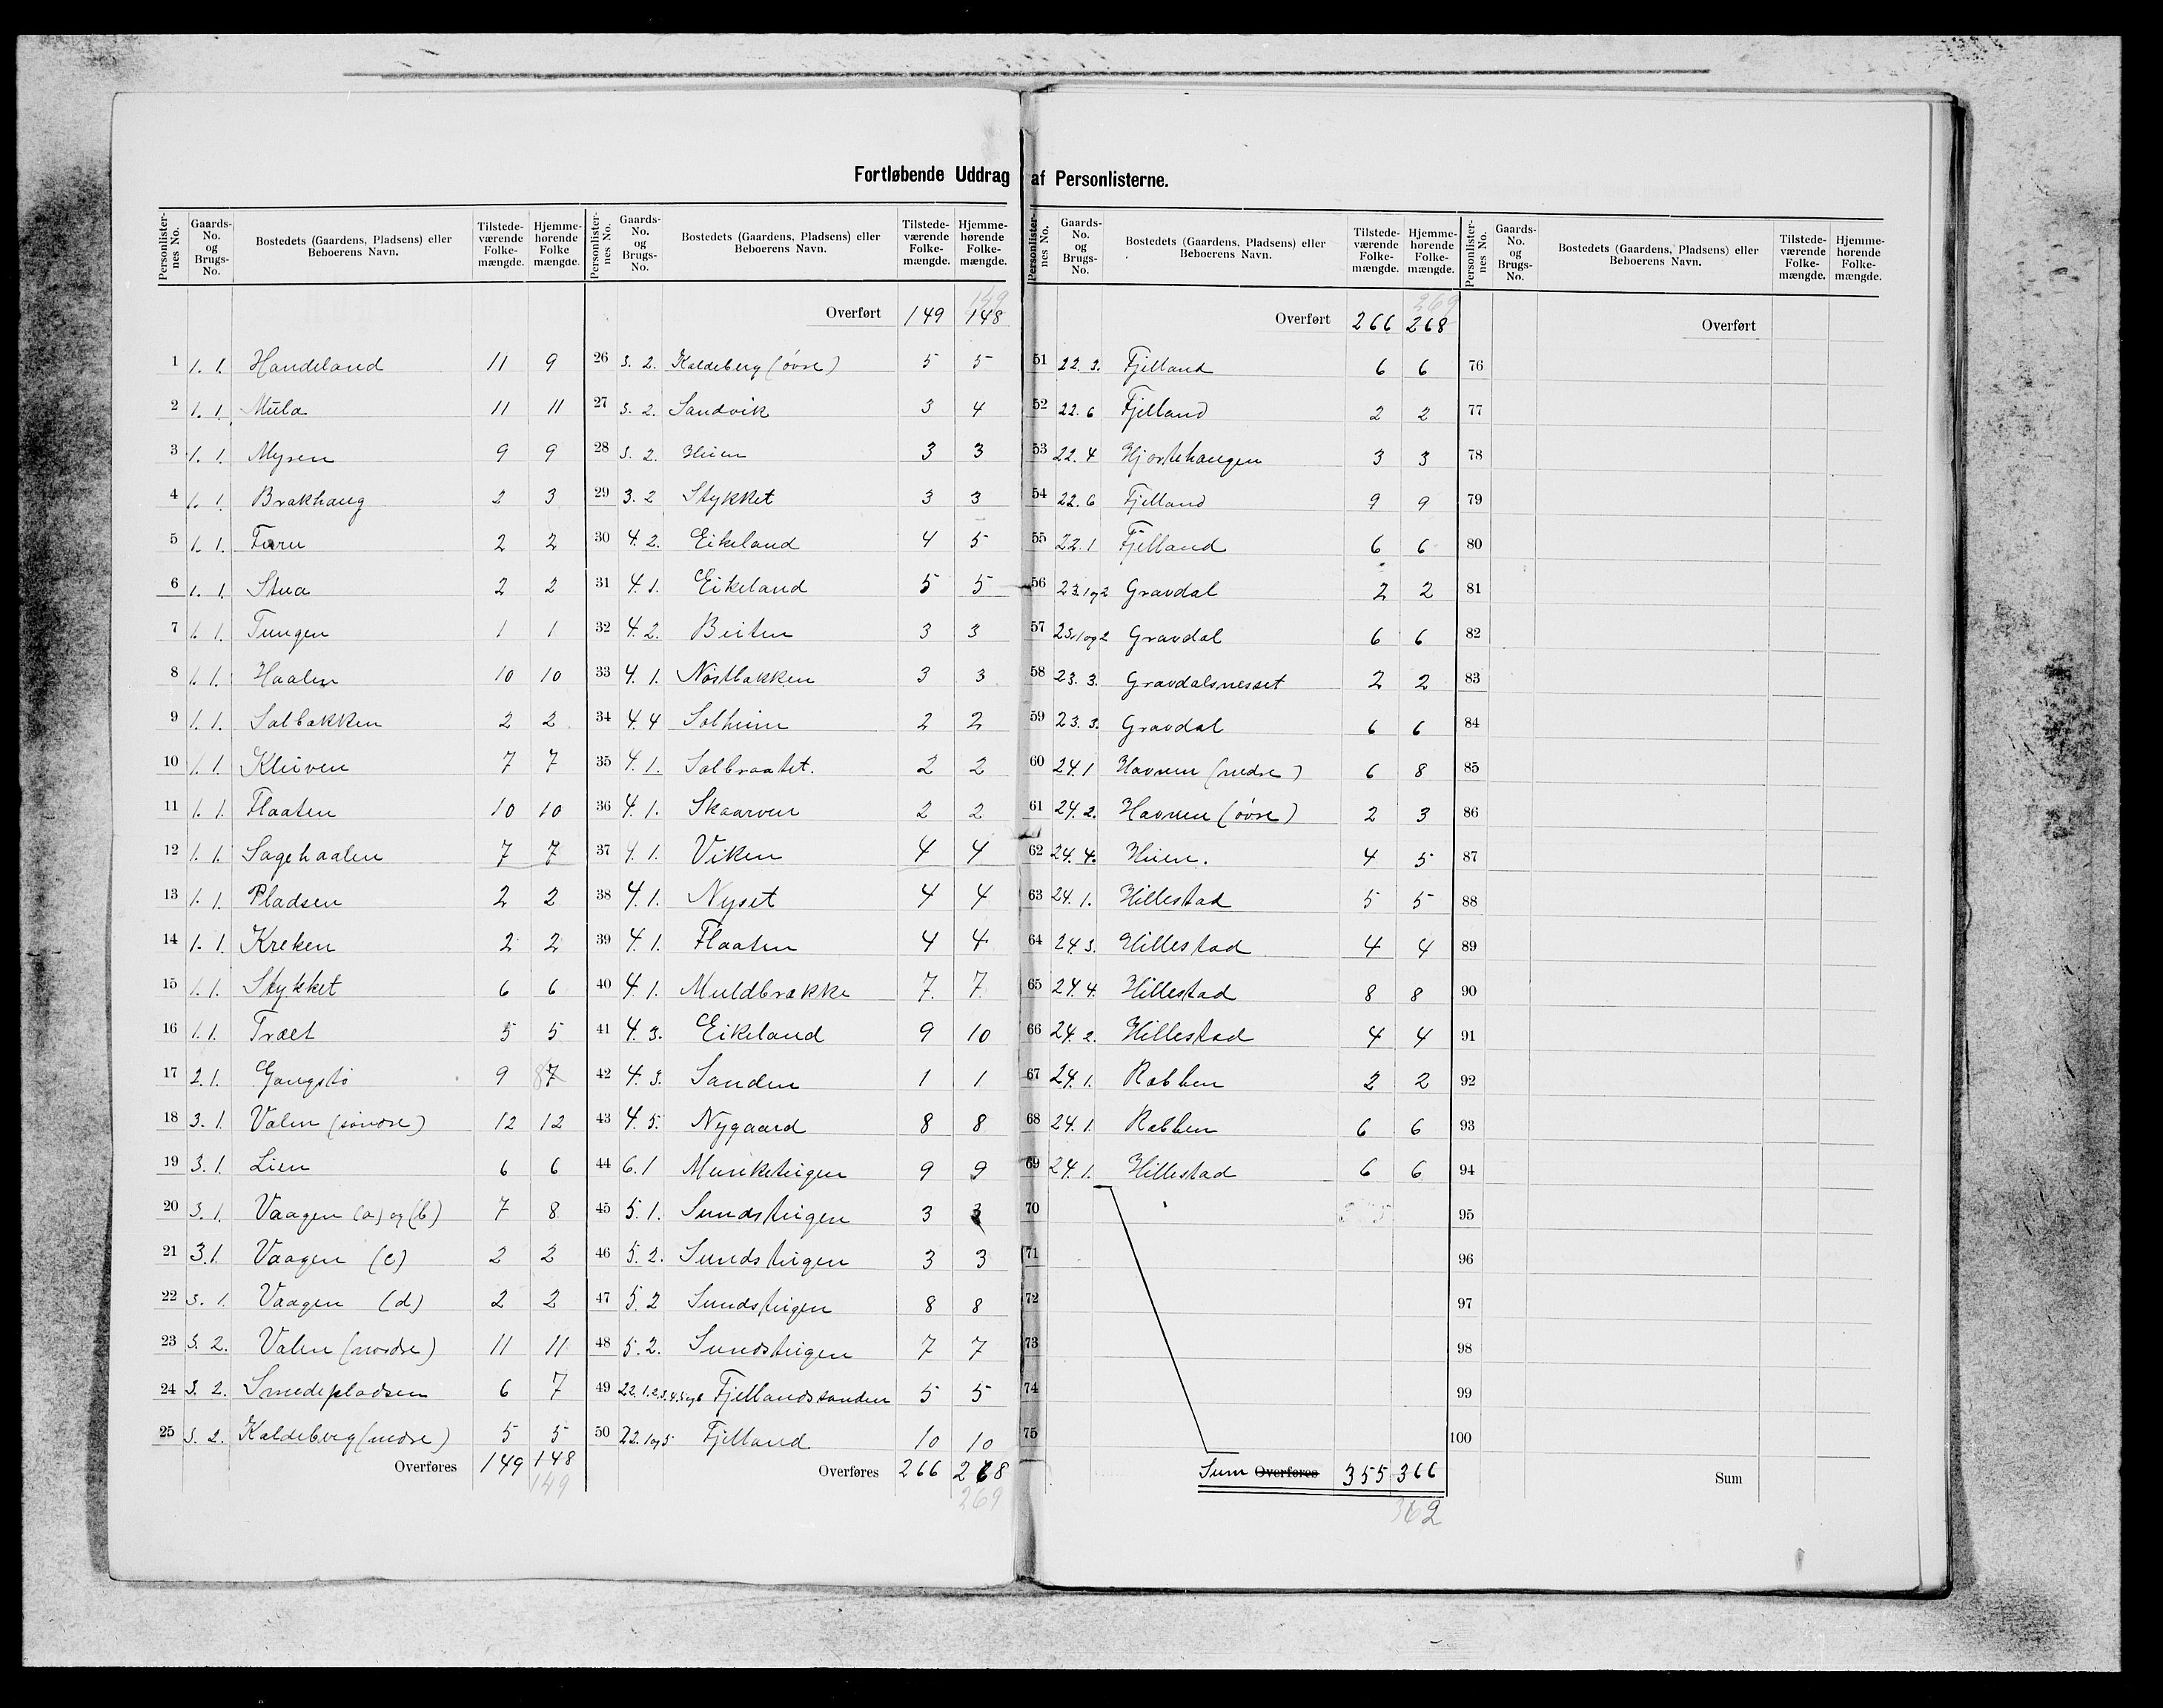 Fortløbende Uddrag af Personlisterne.
Personlisternes No. Gaards-No. og Brugs-No. Bostedets (Gaardens, Pladsens) eller Beboerens Navn. Tilstedeværende Folkemængde. Hjemmehørende Folke mængde.
1 1. 1. Handeland 11 9
2 1. 1. Mula 11 11
3 1. 1. Myren 9 9
4 1. 1. Brakhaug 2 3
5 1. 1. Furu 2 2
6 1. 1. Stua 2 2
7 1. 1. Tungen 1 1
8 1. 1. Haalen 10 10
9 1. 1. Solbakken 2 2
10 1. 1. Kleiven 7 7
11 1. 1. Flaaten 10 10
12 1. 1. Sagehaalen 7 7
13 1. 1. Pladsen 2 2
14 1. 1. Kreken 2 2
15 1. 1. Stykket 6 6
16 1. 1. Træet 5 5
17 2. 1. Gangstø 9 87
18 3. 1. Valen (søndre) 12 12
19 3. 1. Lien 6 6
20 3. 1. Vaagen (a) og (b) 7 8
21 3. 1. Vaagen (c) 2 2
22 3. 1. Vaagen (d) 2 2
23 3. 2. Valen (nordre) 11 11
24 3. 2. Smedepladsen 6 7
25 3. 2. Kaldeberg (nedre) 5 5
Overføres 149 148
149
Personlisternes No. Gaards-No. og Brugs-No. Bostedets (Gaardens, Pladsens) eller Beboerens Navn. Tilstedeværende Folkemængde. Hjemmehørende Folkemængde.
149
Overført 149 148
26 3. 2. Kaldeberg (øvre) 5 5
27 3. 2. Sandvik 3 4
28 3. 2. Heien 3 3
29 3. 2 Stykket 3 3
30 4. 2. Eikeland 4 5
31 4. 1. Eikeland 5 5
32 4. 2. Beiten 3 3
33 4. 1. Nøstbakken 3 3
34 4. 4 Solheim 2 2
35 4. 1. Solbraatet. 2 2
36 4. 1. Skaarven 2 2
37 4. 1. Viken 4 4
38 4. 1. Nyset 4 4
39 4. 1. Flaaten 4 4
40 4. 1. Muldbrække 7. 7
41 4. 3. Eikeland 9 10
42 4. 3. Sanden 1 1
43 4. 5. Nygaard 8 8
44 6. 1 Munketeigen 9 9
45 5. 1. Sundsteigen 3 3
46 5. 2. Sundsteigen 3 3
47 5. 2 Sundsteigen 8 8
48 5. 2. Sundsteigen 7 7
49 22. 1. 2. 3. 4. 5 og 6 Fjellandssanden 5 5
50 22. 1 og 5 Fjelland 10 10
Overføres 266 268
269
Personlisternes No. Gaards-No. og Brugs-No. Bostedets (Gaardens, Pladsens) eller Beboerens Navn. Tilstedeværende Folkemængde. Hjemmehørende Folkemængde.
269
Overført 266 268
51 22. 3. Fjelland 6 6
52 22. 6 Fjelland 2 2
53 22. 4 Hjortehaugen 3 3
54 22. 6 Fjelland 9 9
55 22. 1 Fjelland 6 6
56 23. 1 og 2 Gravdal 2 2
57 23. 1 og 2 Gravdal 6 6
58 23. 3. Gravdalsnesset 2 2
59 23. 3. Gravdal 6 6
60 24. 1 Havnen (nedre) 6 8
61 24. 2. Havnen (øvre) 2 3
62 24. 4. Heien. 4 5
63 24. 1. Hillestad 5 5
64 24 3. Hillestad 4 4
65 24. 4. Hillestad 8 8
66 24. 2. Hillestad 4 4
67 24. 1. Rabben 2 2
68 24. 1. Rabben 6 6
69 24. 1. Hillestad 6 6
70
71
72
73
74
75
Sum Overføres 355 366
362
Personlisternes No. Gaards-No. og Brugs-No. Bostedets (Gaardens, Pladsens) eller Beboerens Navn. Tilstedeværende Folkemængde. Hjemmehørende Folkemængde.
Overført
76
77
78
79
80
81
82
83
84
85
86
87
88
89
90
91
92
93
94
95
96
97
98
99
100
Sum